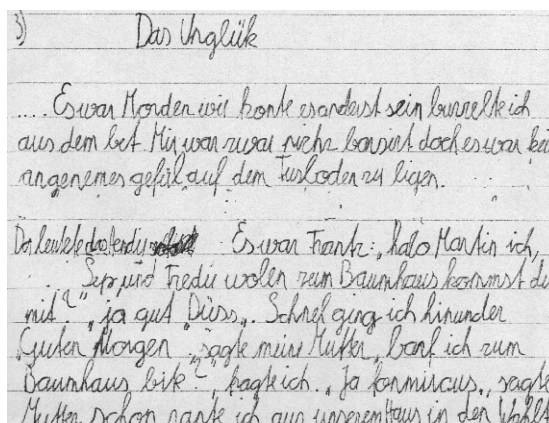 3) Das Unglük
.... Es war Morden wie konte es anderst sein burzelte ich
aus dem bet. Mir war zwar nichz basirt doch es war kei
angenemes gefül auf dem Fusboden zu ligen.
Da leutete das Es war Frantz: „halo Martin ich,
Sep, und Fredi wolen zum Baumhaus kommst du
mit?" „ja gut Düss„. Schnel ging ich hinunder
„Guten Morgen sagte meine Mutter „darf ich zum
Baumhaus bite?" fragte ich. „Ja formiraus„ sagte
Mutter schon rante ich aus unserem Haus in den Wahlt